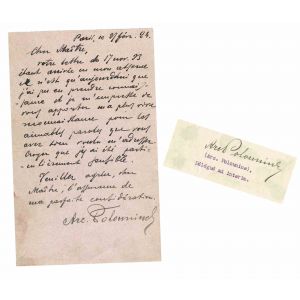 Paris, le 21 fév. 24.
Cher Maître,
votre lettre du 17 nov. 23
étant arrivée en mon absence
ce n'est qu'aujourd'hui que
j'ai pu en prendre connais-
sance et je m'empresse de
vous apporter ma plus vive
reconnaissance pour les
aimables paroles que vous
avez bien voulu m'adresser
Croyez que j'y ai été parti-
culièrement sensible.
Veuillez agréer, cher
Maître, l'assurance de
ma parfaite considération.
Arc.
Arc.
(Arc.
Délégué ad interim.